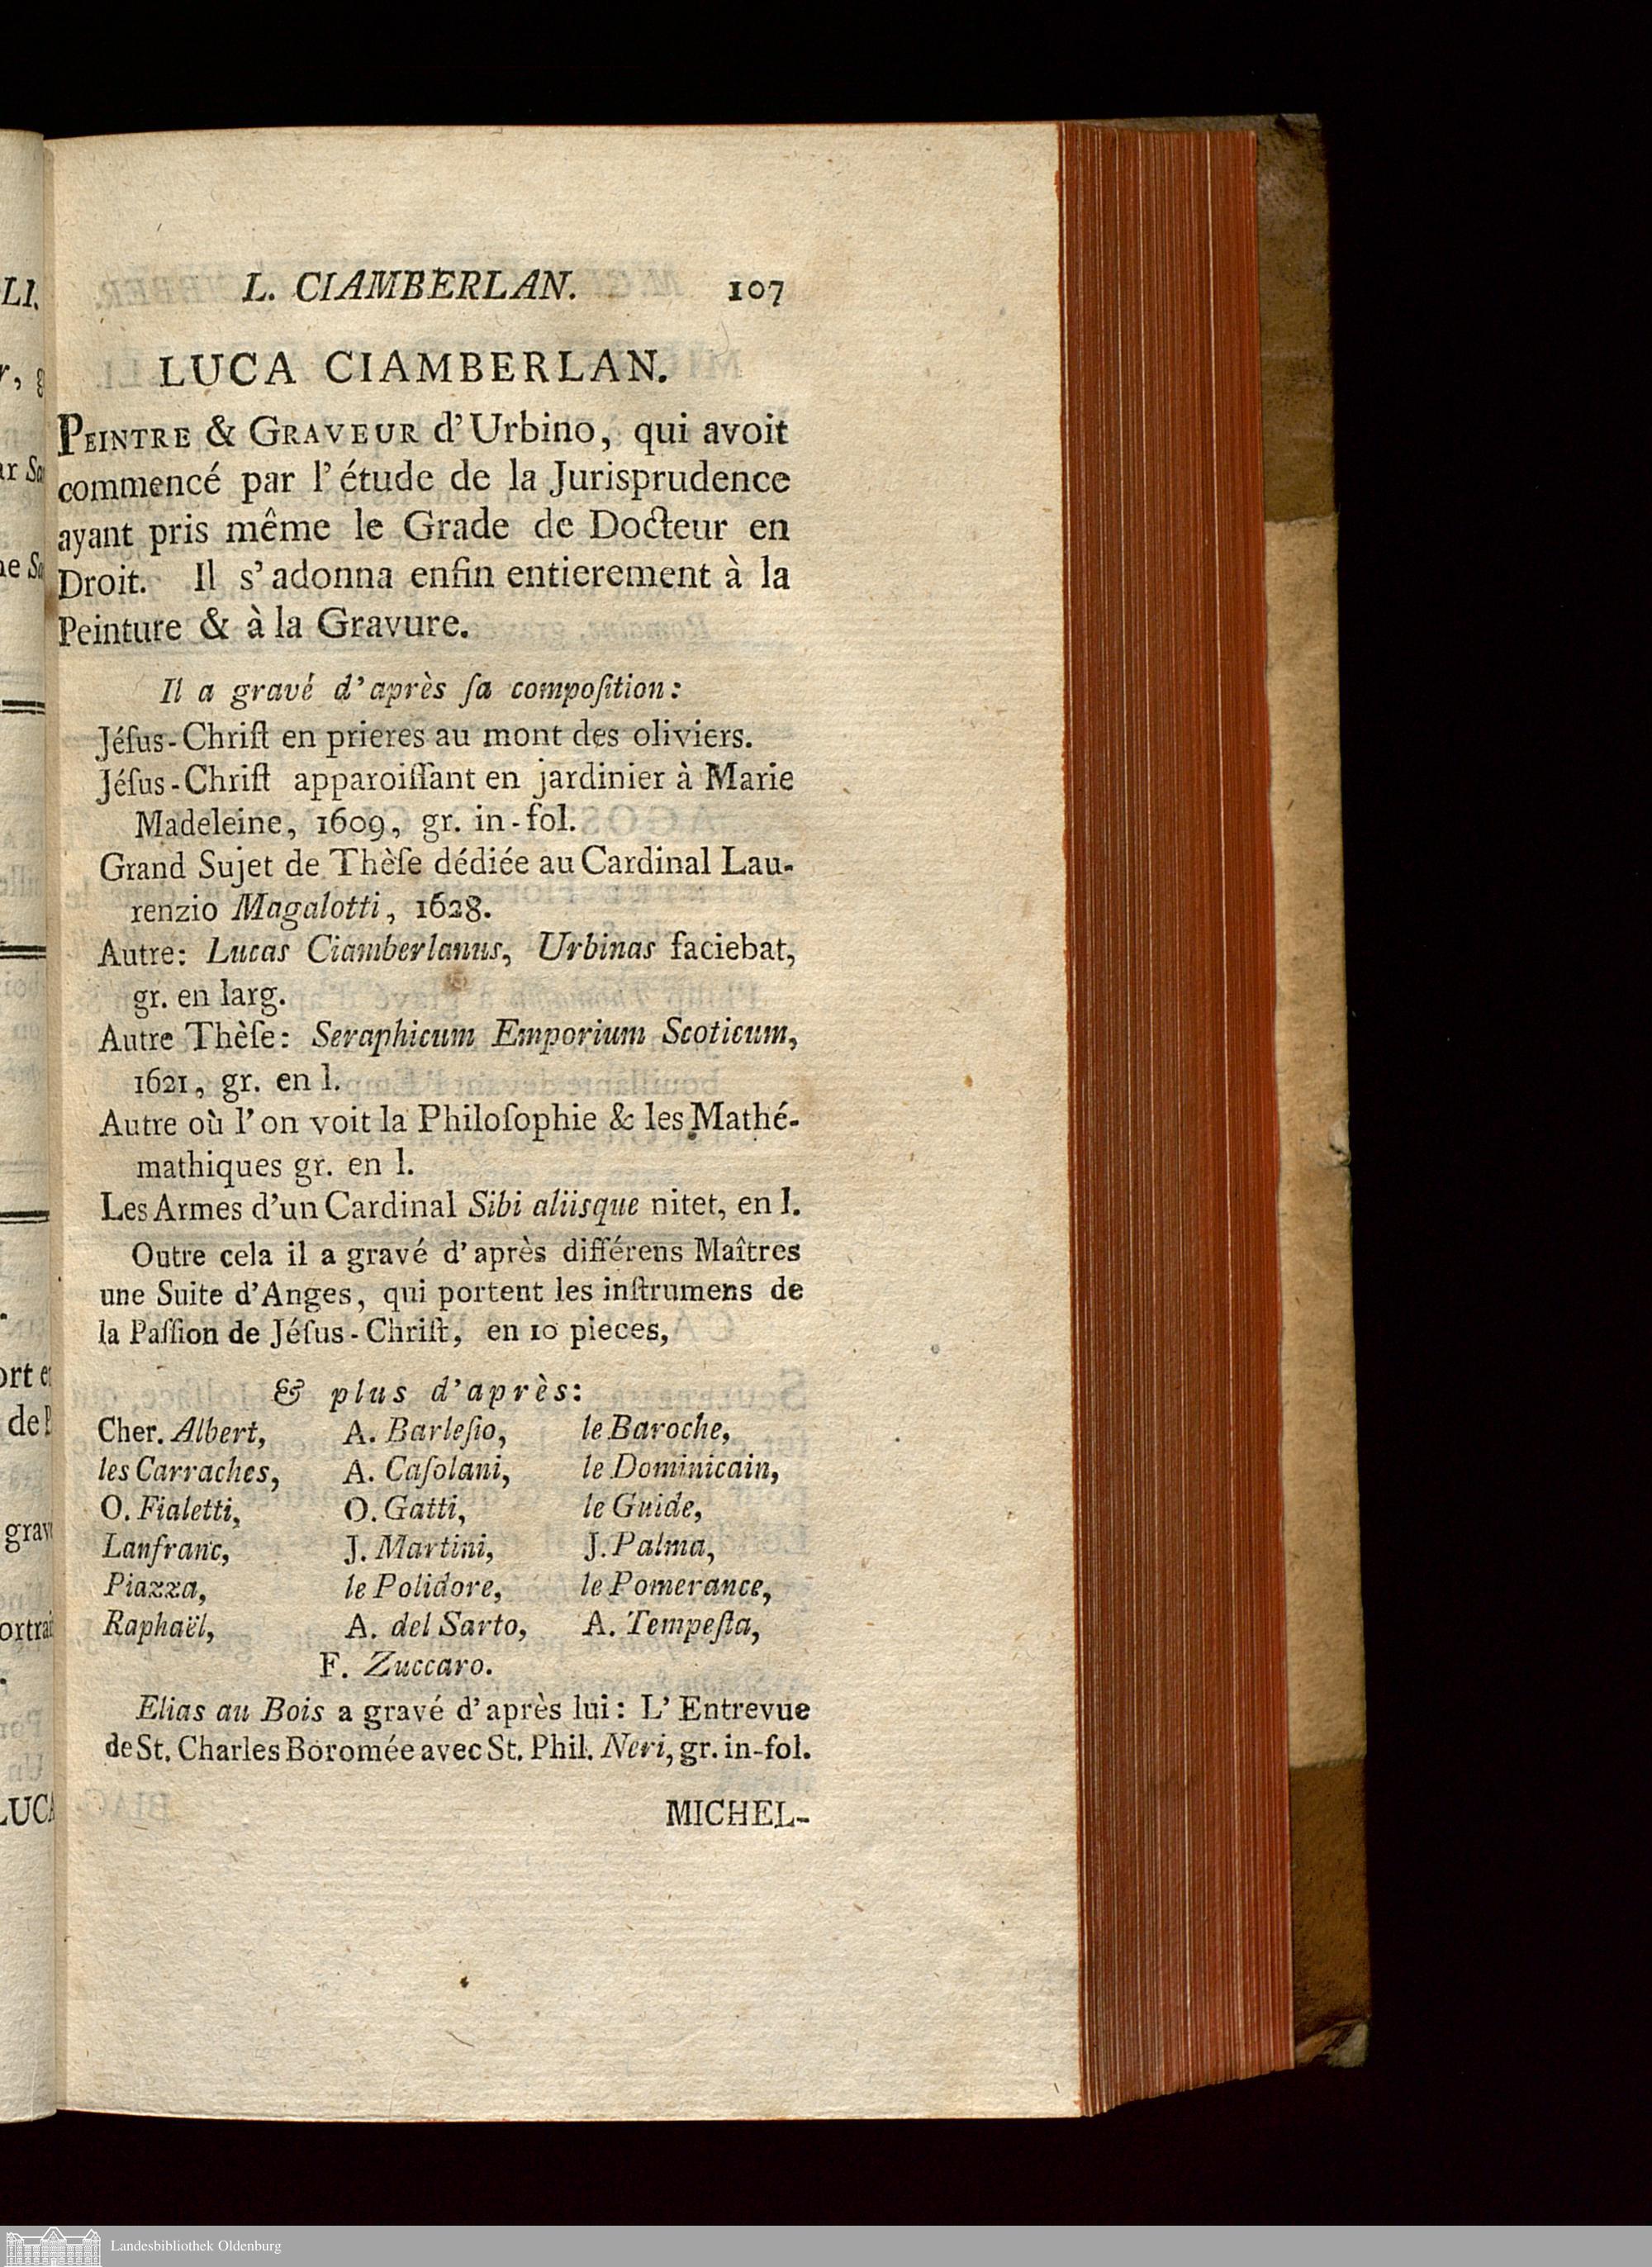 L. CIAMBERLAN. 107
LUCA CIAMBERLAN.
PEINTRE & GRAVEUR d'Urbino, qui avoit
commencé par l'étude de la Jurisprudence
ayant pris même le Grade de Docteur en
Droit. Il s'adonna enfin entierement à la
Peinture & à la Gravure.
Il a gravé d'après ſa compoſition:
Jéſus-Chriſt en prieres au mont des oliviers.
Jéſus-Chriſt apparoiſſant en jardinier à Marie
Madeleine, 1609, gr. in-fol.
Grand Sujet de Thèſe dédiée au Cardinal Lau-
renzio Magalotti, 1628.
Autre: Lucas Ciamberlanus, Urbinas faciebat,
gr. en larg.
Autre Thèſe: Seraphicum Emporium Scoticum,
1621, gr. en l.
Autre où l'on voit la Philoſophie & les Mathé-
mathiques gr. en l.
Les Armes d'un Cardinal Sibi aliisque nitet, en l.
Outre cela il a gravé d'après différens Maîtres
une Suite d'Anges, qui portent les inſtrumens de
la Paſſion de Jéſus-Chriſt, en 10 pieces,
& plus d'après:
Cher. Albert, A. Barleſio, le Baroche,
les Carraches, A. Caſolani, le Dominicain,
O. Fialetti, O. Gatti, le Guide,
Lanfranc, J. Martini, J. Palma,
Piazza, le Polidore, le Pomerance,
Raphaël, A. del Sarto, A. Tempeſta,
F. Zuccaro.
Elias au Bois a gravé d'après lui: L'Entrevue
de St. Charles Boromée avec St. Phil. Neri, gr. in-fol.
MICHEL-
Landesbibliothek Oldenburg